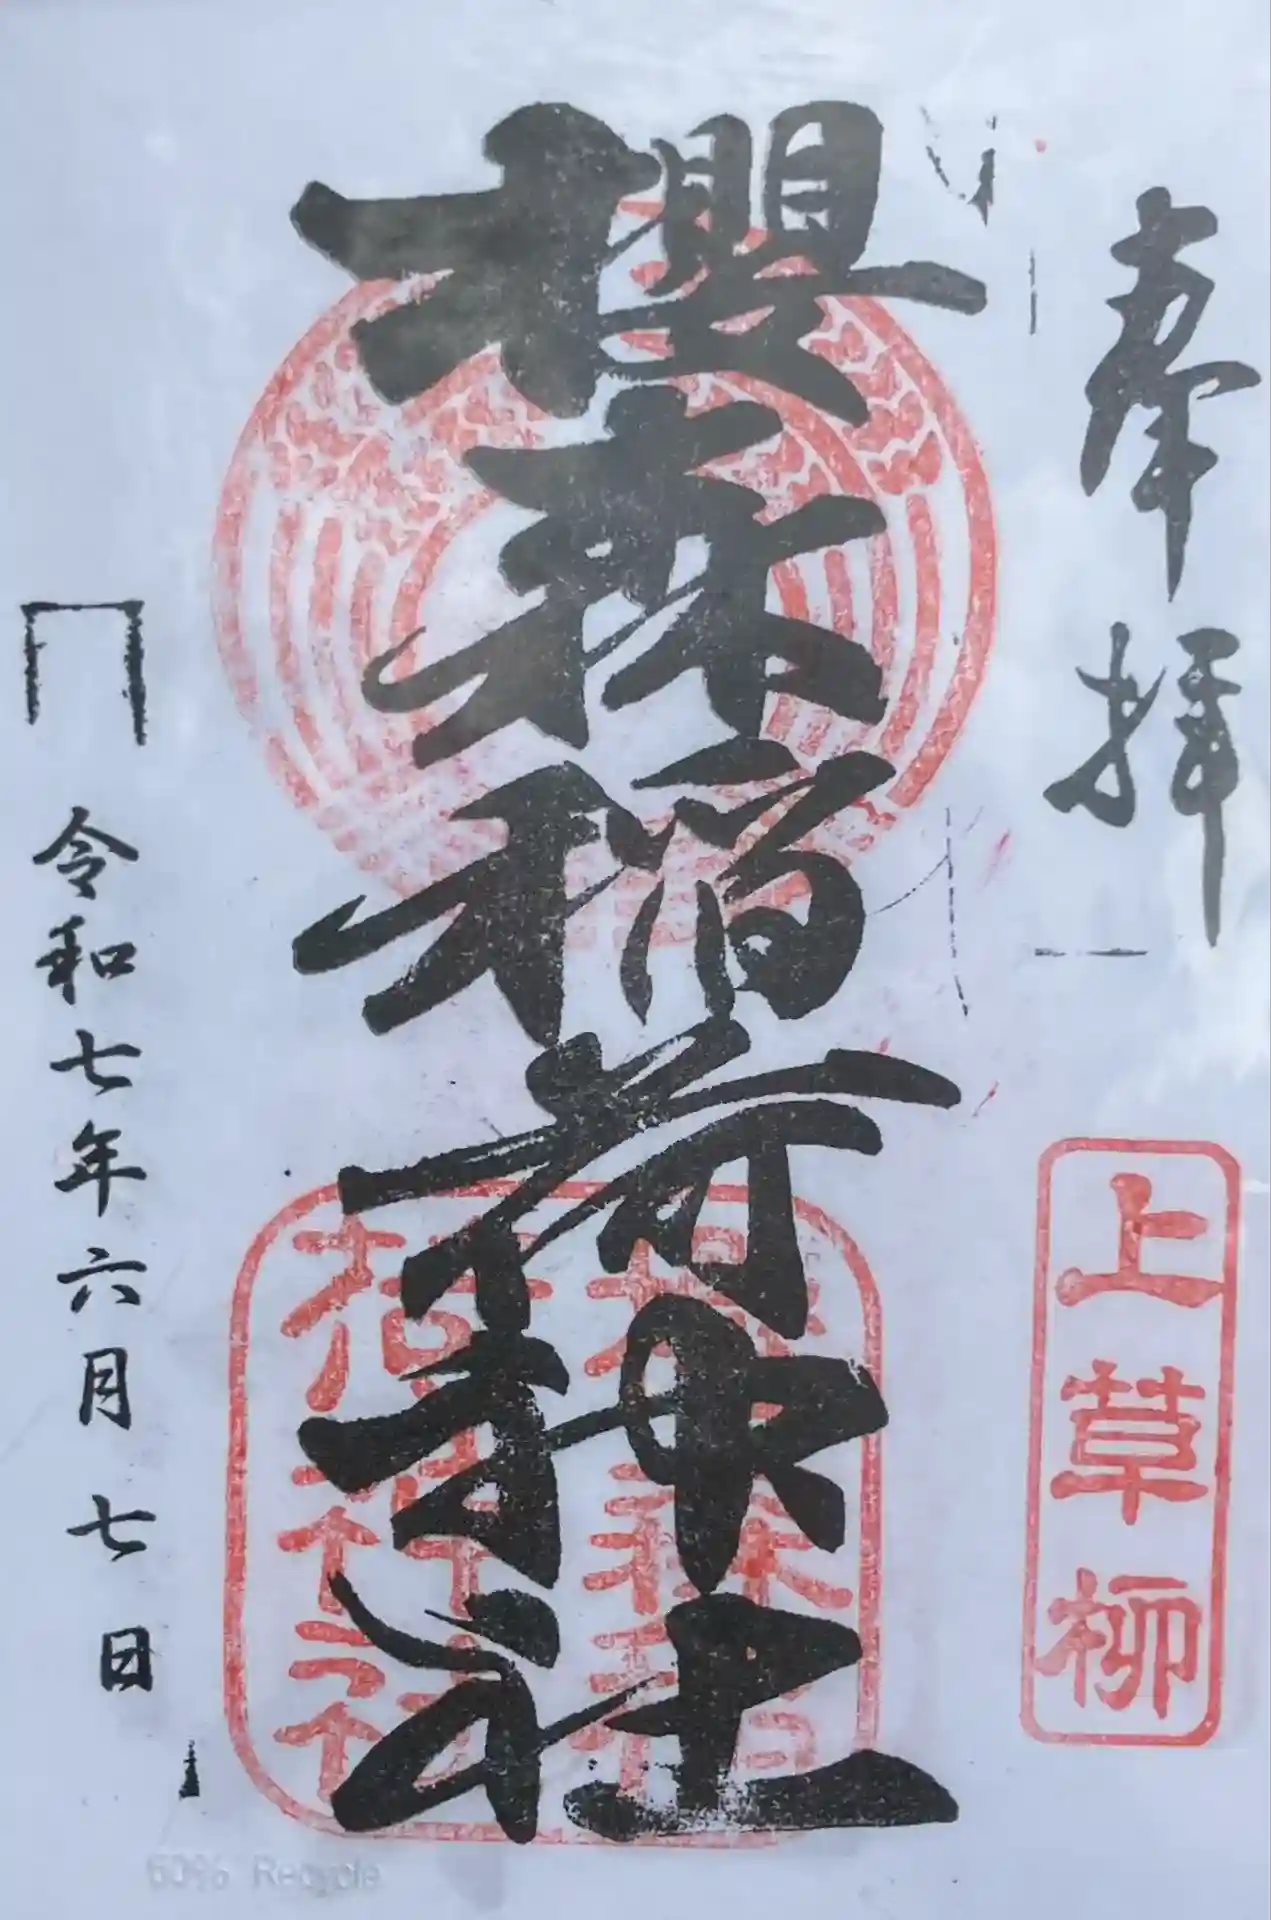 奉拝
上草柳
櫻森稲荷神社
令和七年六月七日
60% Recycle